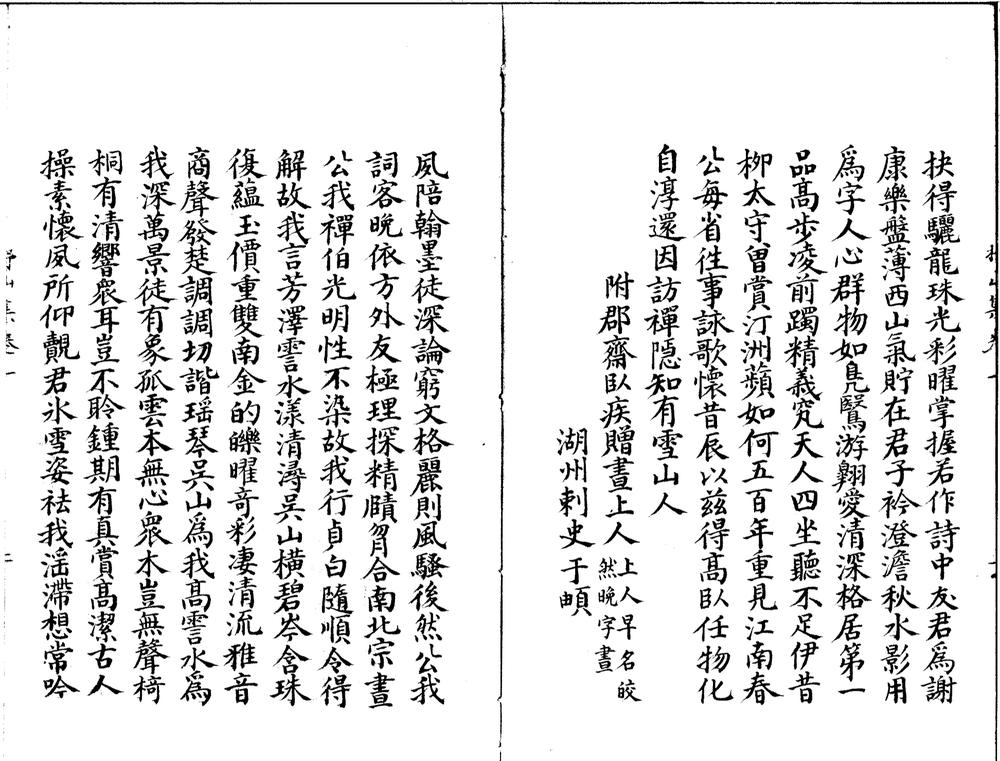 抉得驪龍珠光彩曜掌握若作詩中友君爲謝
康樂盤薄西山氣貯在君子衿澄澹秋水影用
爲字人心群物如鳧鷖游翺愛清深格居第一
品高步凌前躅精義究天人四坐聽不足伊昔
柳太守曾賞汀洲蘋如何五百年重見江南春
公每省徃事詠歌懷昔辰以兹得高臥任物化
自淳還因訪禪隠知有雪山人
附郡齋臥疾贈晝上人
上人早名皎
然晚字晝
湖州刺史于頔
夙陪翰墨徒深論窮文格麗則風騷後然公我
詞客晚依方外友極理探精賾胷合南北宗晝
公我禪伯光明性不染故我行貞白隨順令得
解故我言芳澤霅水漾清潯吳山橫碧岑含珠
復蘊玉價重雙南金的皪曜奇彩凄清流雅音
商聲發楚調調切諧瑶琴吳山爲我高霅水爲
我深萬景徒有象孤雲本無心衆木豈無聲椅
桐有清響衆耳豈不聆鍾期有真賞高潔古人
操素懷夙所仰覿君氷雪姿袪我滛滯想常吟